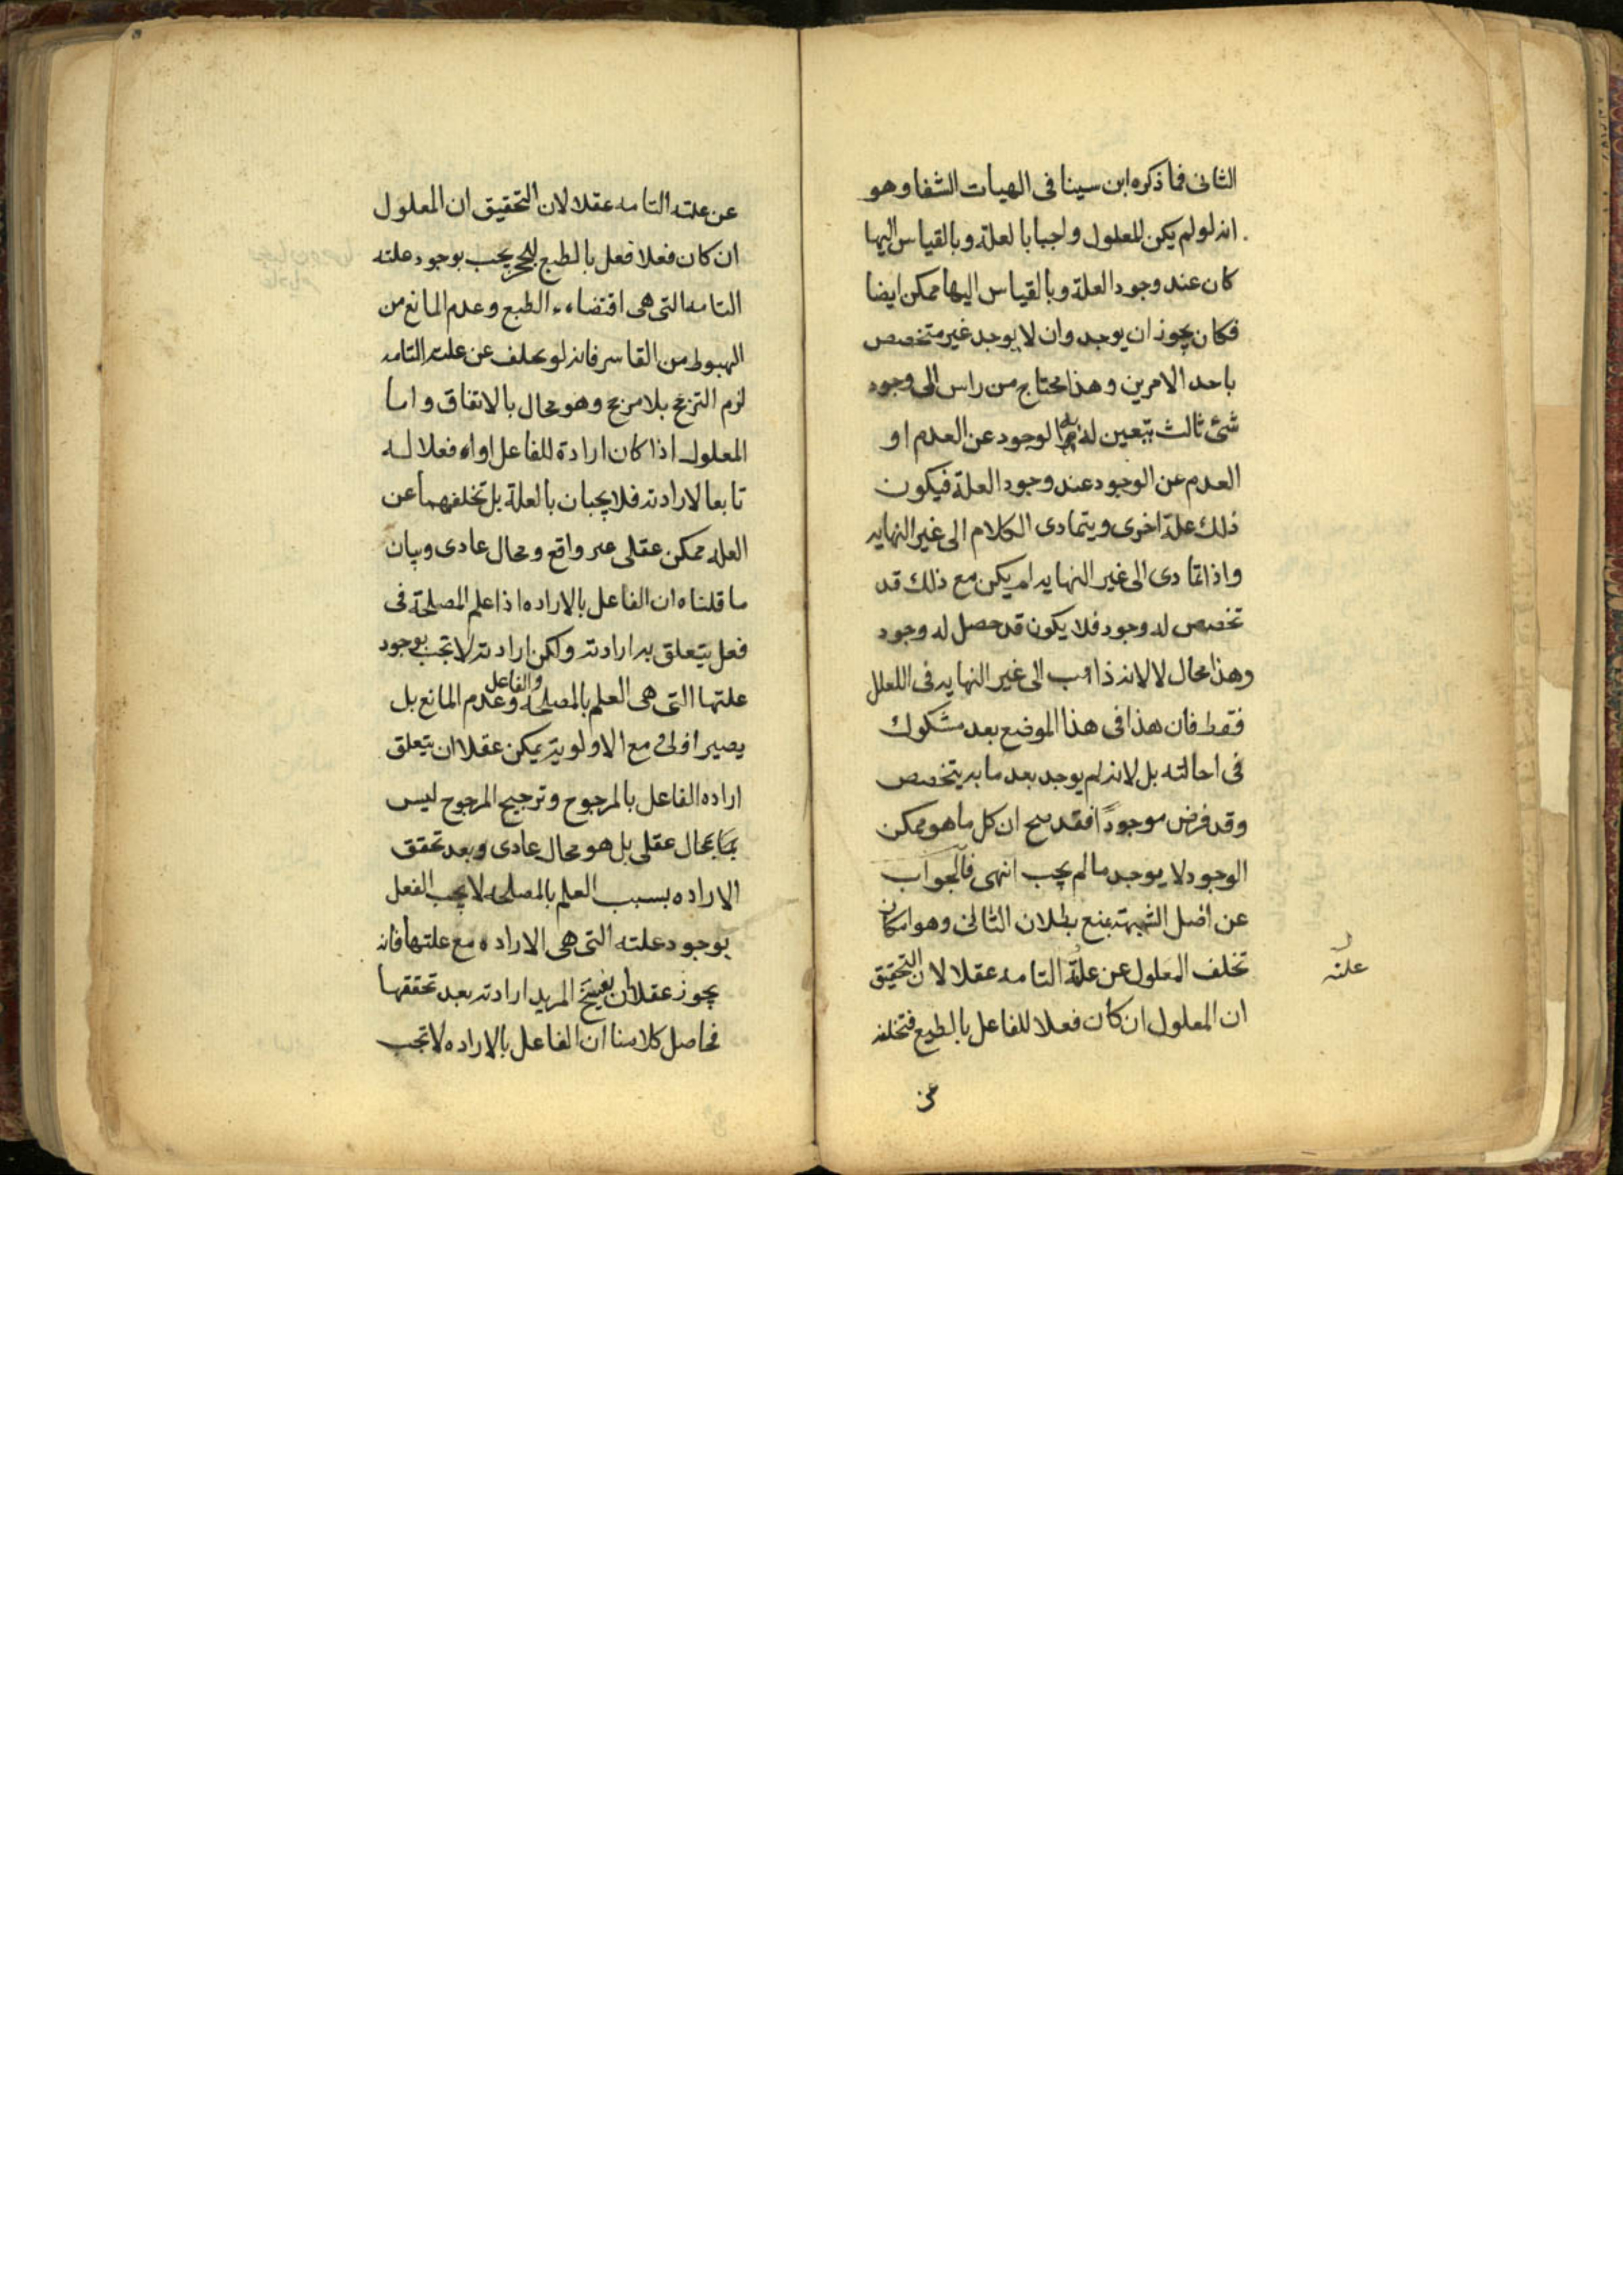 الثانى فما ذكره ابن سينا فى الهيات الشفا وهو
انه لو لم يكن المعلول واجبا بالعلة وبالقياس اليها
كان عند وجود العلة وبالقياس اليها ممكن ايضا
فكان يجوز ان يوجد وان لا يوجد غير متخصص
باحد الامرين وهذا محتاج من راس الى وجود
شئ ثالث يتعين له به الوجود عن العدم او
العدم عن الوجود عند وجود العلة فيكون
ذلك علة اخرى ويتمادى الكلام الى غير النهايه
واذا تمادى الى غير النهايه لم يكن مع ذلك قد
تخصص له وجود فلا يكون قد حصل له وجود
وهذا محال لا لانه ذاهب الى غير النهايه فى العلل
فقط فان هذا فى هذا الموضع بعد مشكوك
فى احالته بل لانه لم يوجد بعد ما به يتخصص
وقد فرض موجودًا فقد صح ان كل ما هو ممكن
الوجود لا يوجد ما لم يجب انتهى فالجواب
عن اصل الشبهة بمنع بطلان الثانى وهو امكان
تخلف المعلول عن علة التامه عقلا لان التحقيق
علته
ان المعلول ان كان فعلا للفاعل بالطبع فتخلفه
عن
عن علته التامه عقلا لان التحقيق ان المعلول
ان كان فعلا فعل بالطبع للحجر يجب بوجود علته
التامه التى هى اقتضاء الطبع وعدم المانع من
الهبوط من القاسر فانه لو تخلف عن علته التامه
لزم الترجح بلا مرجح وهو محال بالاتفاق واما
المعلول اذا كان ارادة للفاعل او فعلا له
تابعا لارادته فلا يجبان بالعلة بل تخلفهما عن
العله ممكن عقلى غير واقع ومحال عادى وبيان
ما قلناه ان الفاعل بالاراده اذا علم المصلحة فى
فعل يتعلق به ارادته ولكن ارادته لا تجب بوجود
علتها التى هى العلم بالمصلحه والفاعل وعدم المانع بل
يصير اولى مع الاولوية يمكن عقلا ان يتعلق
اراده الفاعل بالمرجوح وترجيح المرجوح ليس
بمحال عقلى بل هو محال عادى وبعد تحقق
الاراده بسبب العلم بالمصلحه لا يجب الفعل
بوجود علته التى هى الاراده مع علتها فانه
يجوز عقلا ان يفسخ المريد ارادته بعد تحققها
فحاصل كلامنا ان الفاعل بالاراده لا تجب